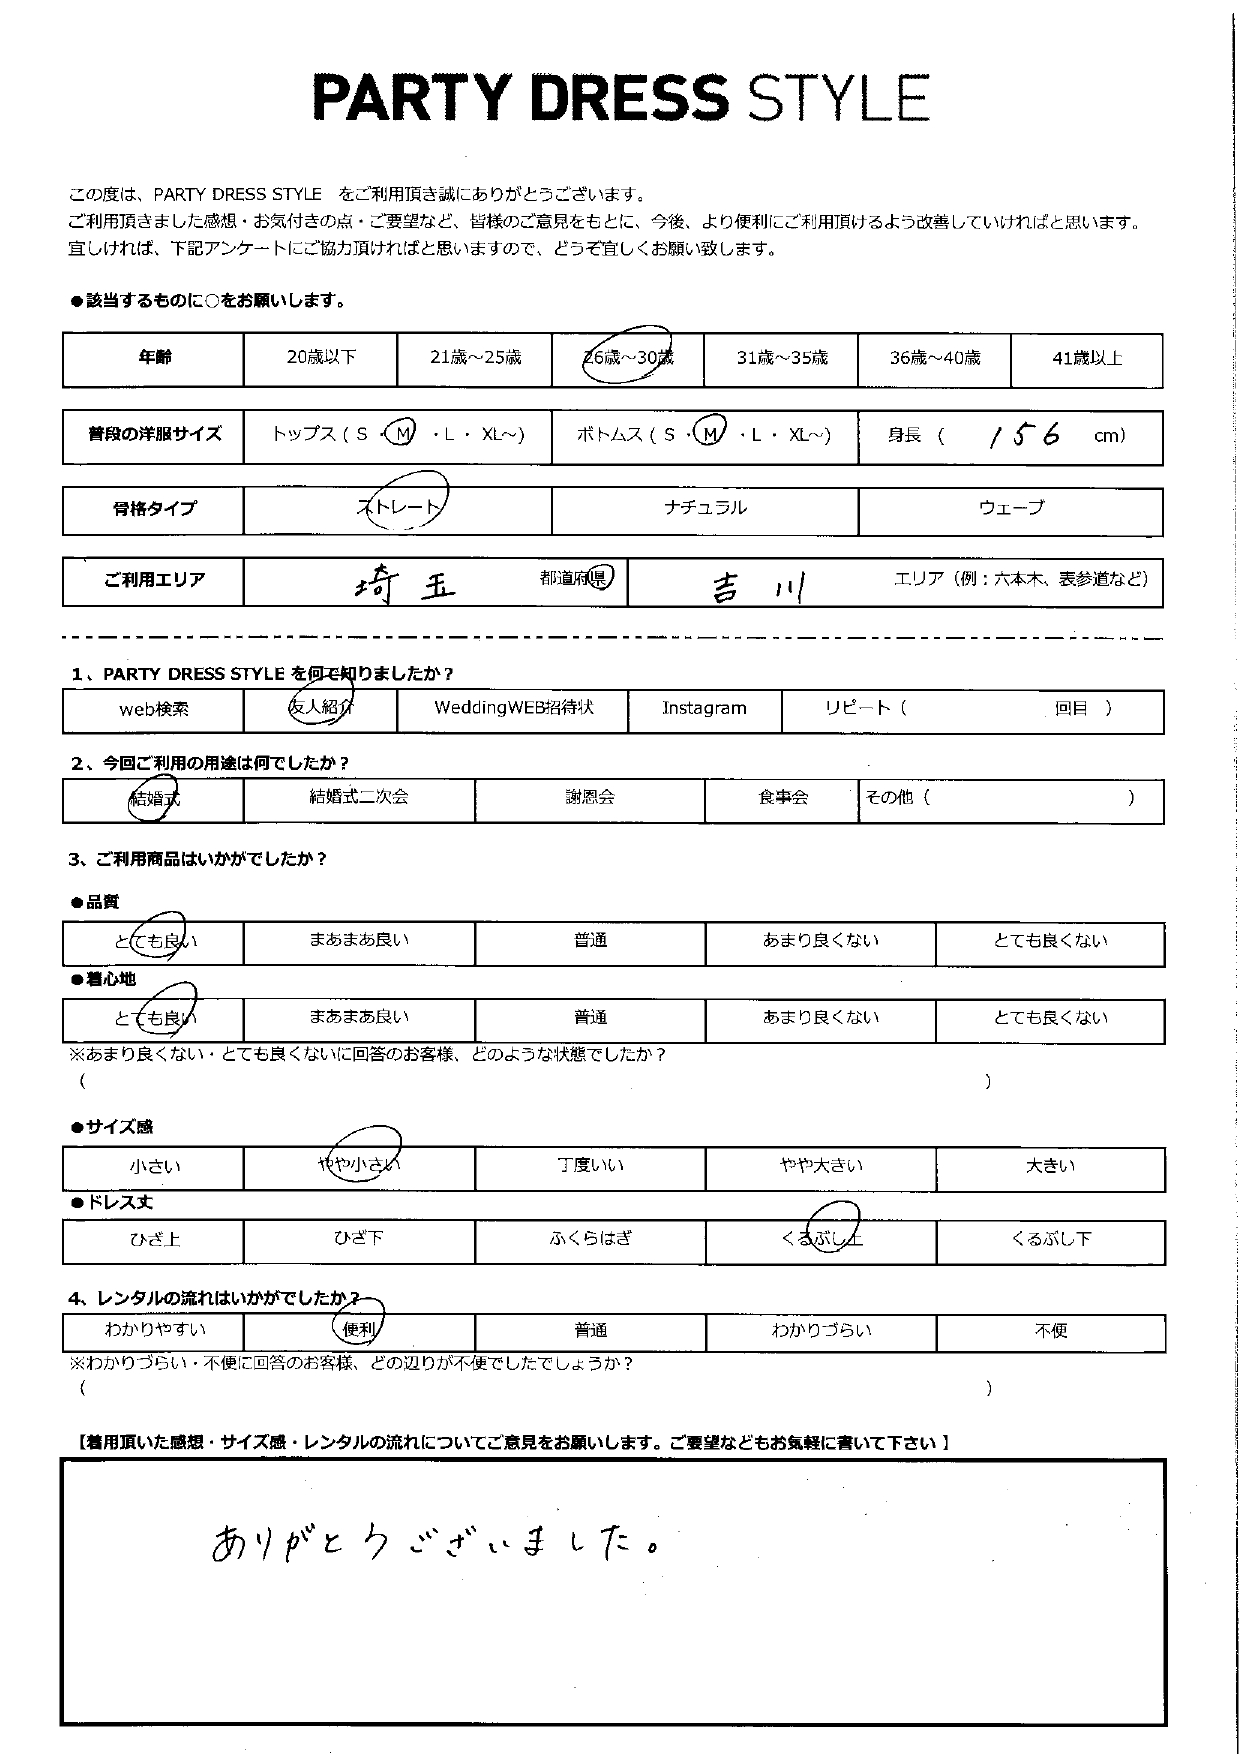 PARTY DRESS STYLE
この度は、PARTY DRESS STYLE をご利用頂き誠にありがとうございます。
ご利用頂きました感想・お気付きの点・ご要望など、皆様のご意見をもとに、今後、より便利にご利用頂けるよう改善していければと思います。
宜しければ、下記アンケートにご協力頂ければと思いますので、どうぞ宜しくお願い致します。
●該当するものに○をお願いします。
年齢 20歳以下 21歳～25歳 26歳～30歳 31歳～35歳 36歳～40歳 41歳以上
普段の洋服サイズ トップス ( S ・ M ・ L ・ XL～) ボトムス ( S ・ M ・ L ・ XL～) 身長 ( 156 cm)
骨格タイプ ストレート ナチュラル ウェーブ
ご利用エリア 埼玉 都道府県 吉川 エリア（例：六本木、表参道など）
1、PARTY DRESS STYLE を何で知りましたか？
web検索 友人紹介 WeddingWEB招待状 Instagram リピート（ 回目 ）
2、今回ご利用の用途は何でしたか？
結婚式 結婚式二次会 謝恩会 食事会 その他（ ）
3、ご利用商品はいかがでしたか？
●品質
とても良い まあまあ良い 普通 あまり良くない とても良くない
●着心地
とても良い まあまあ良い 普通 あまり良くない とても良くない
※あまり良くない・とても良くないに回答のお客様、どのような状態でしたか？
（ ）
●サイズ感
小さい やや小さい 丁度いい やや大きい 大きい
●ドレス丈
ひざ上 ひざ下 ふくらはぎ くるぶし上 くるぶし下
4、レンタルの流れはいかがでしたか？
わかりやすい 便利 普通 わかりづらい 不便
※わかりづらい・不便に回答のお客様、どの辺りが不便でしたでしょうか？
（ ）
【着用頂いた感想・サイズ感・レンタルの流れについてご意見をお願いします。ご要望などもお気軽に書いて下さい 】
ありがとうございました。